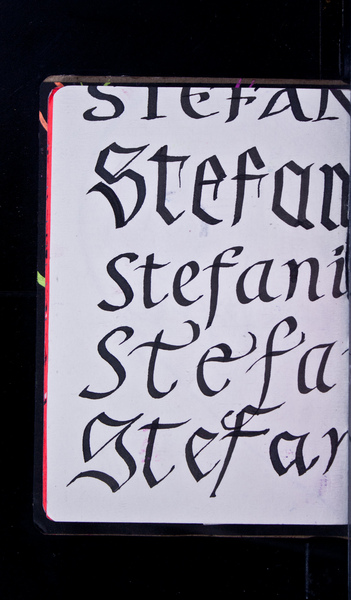 STEFAN
Stefan
Stefani
Stefa
Stefan